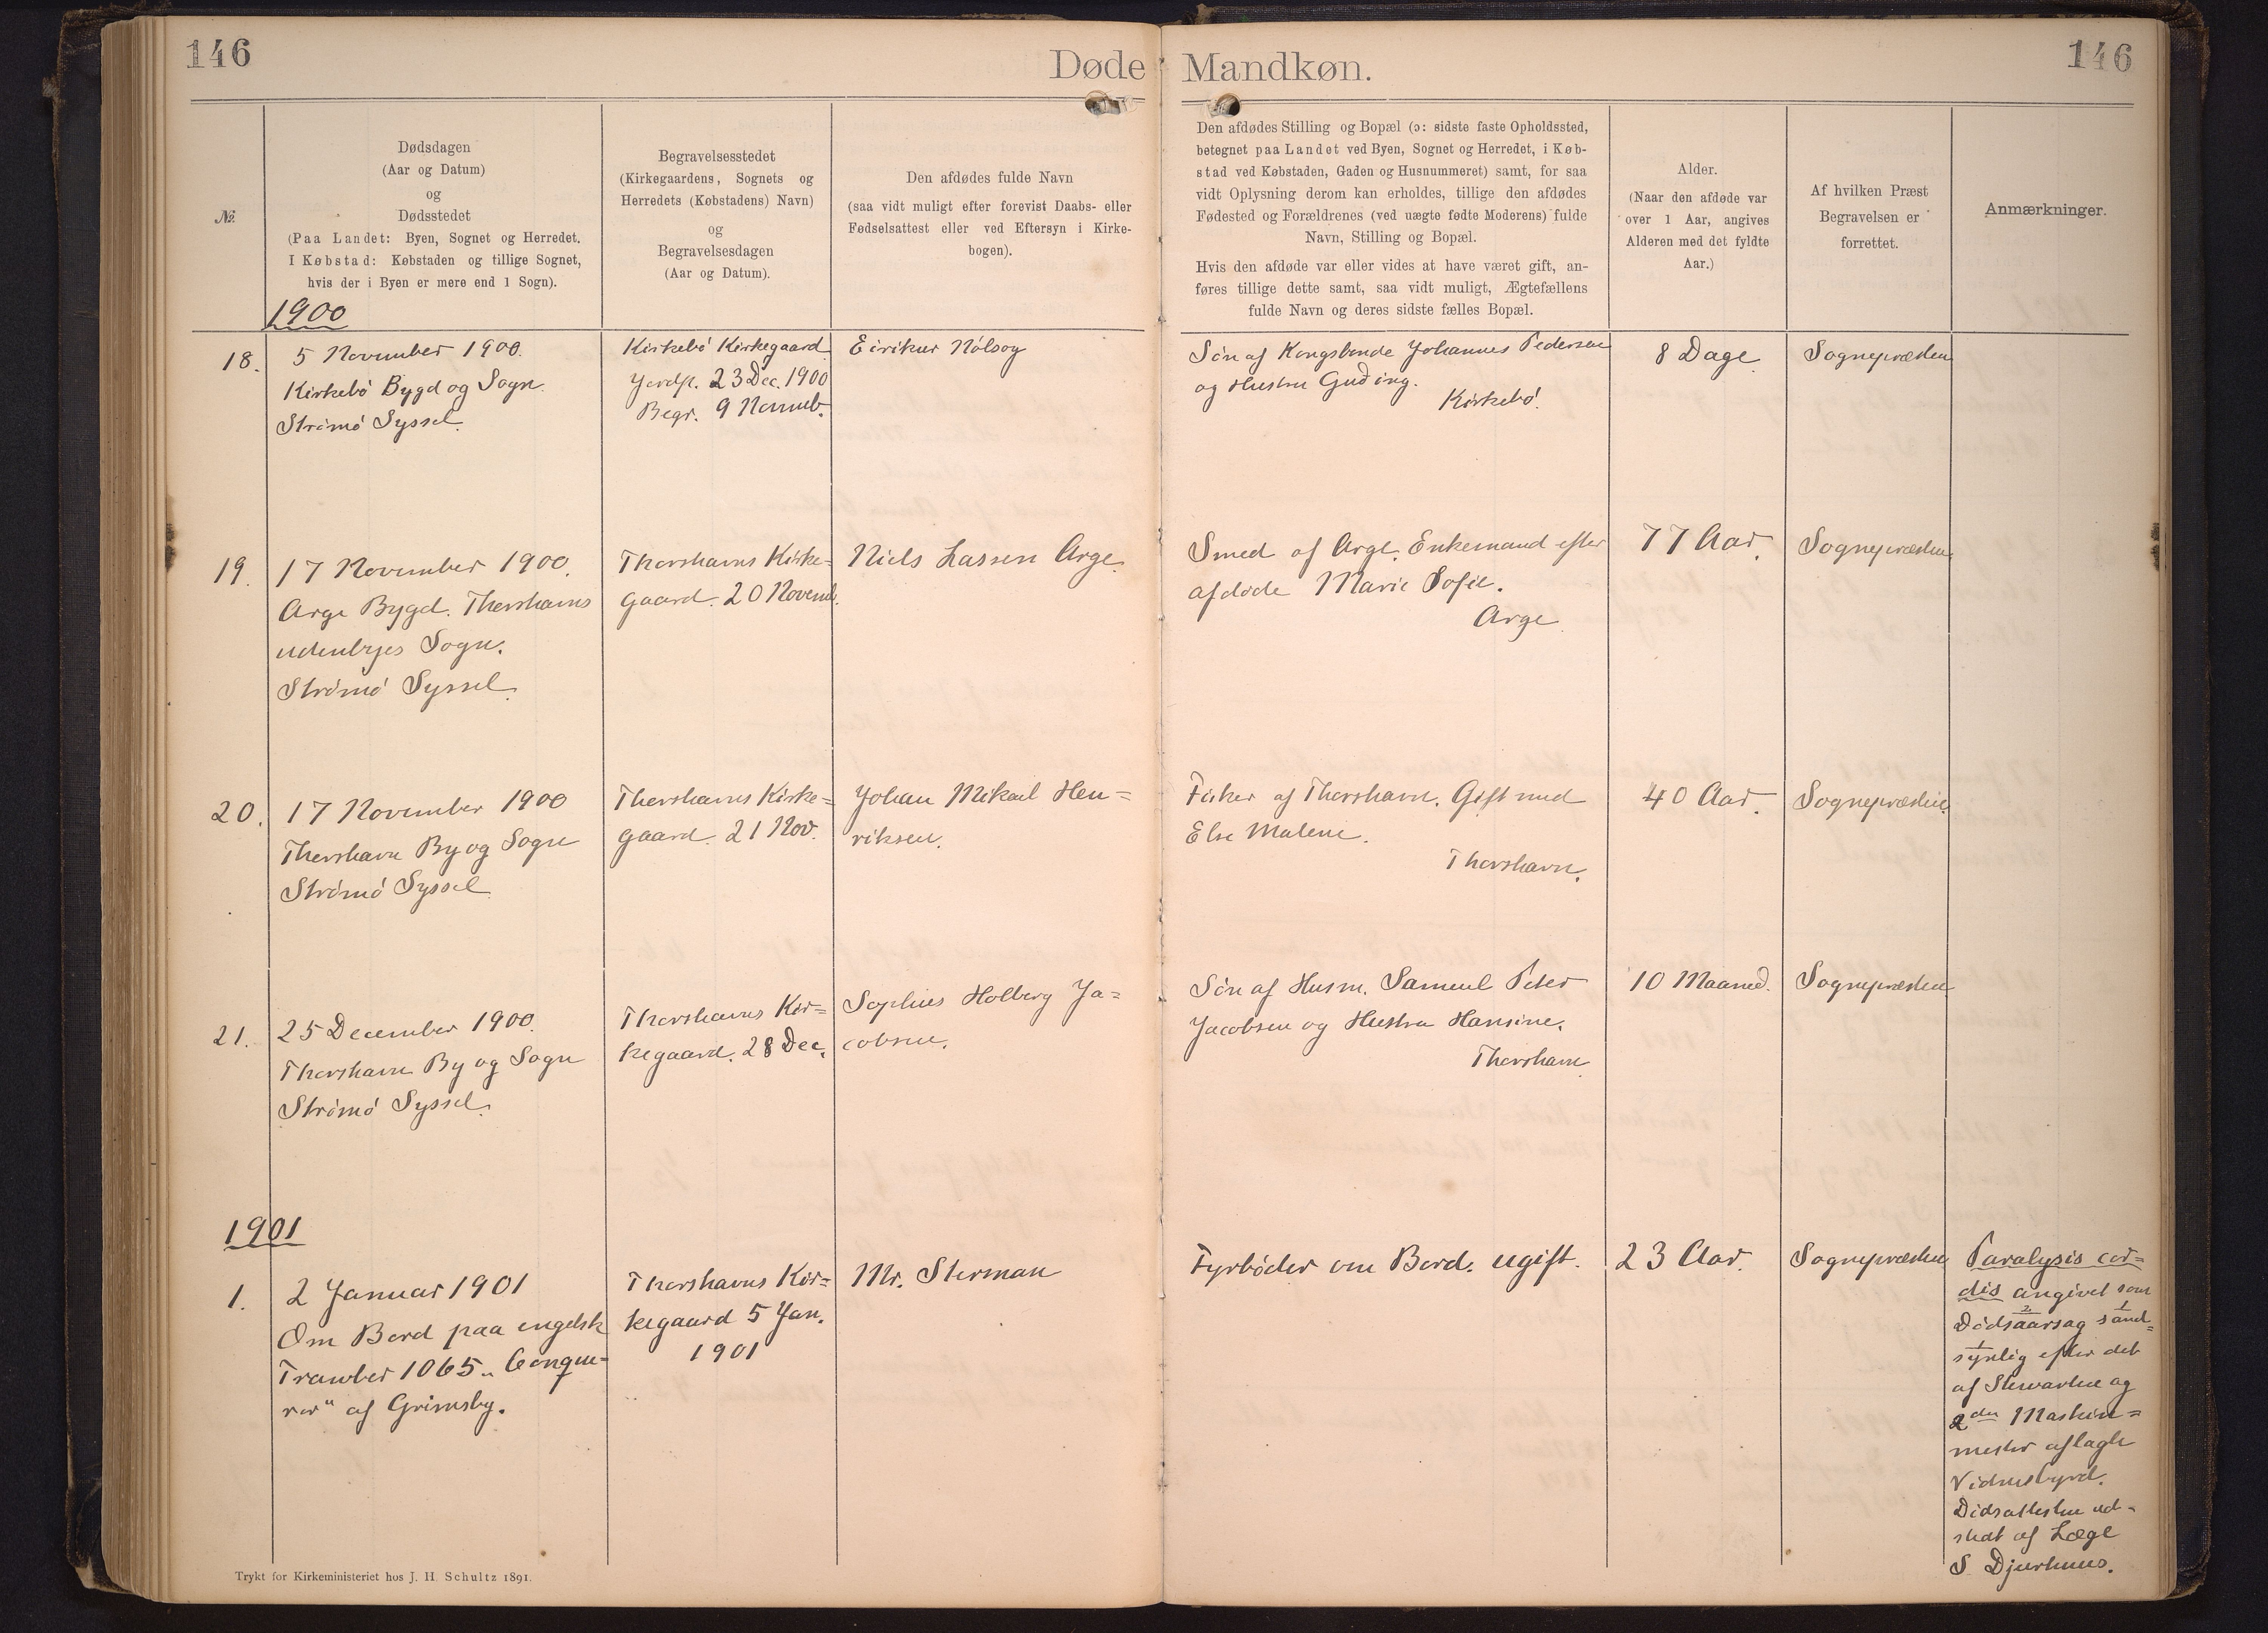 146
Døde Mandkøn.
146
№.
Dødsdagen
(Aar og Datum)
og
Dødsstedet
(Paa Landet: Byen, Sognet og Herredet.
I Købstad: Købstaden og tillige Sognet,
hvis der i Byen er mere end 1 Sogn).
Begravelsesstedet
(Kirkegaardens, Sognets og
Herredets (Købstadens) Navn)
og
Begravelsesdagen
(Aar og Datum).
Den afdødes fulde Navn
(saa vidt muligt efter forevist Daabs- eller
Fødselsattest eller ved Eftersyn i Kirke-
bogen).
Den afdødes Stilling og Bopæl (ɔ: sidste faste Opholdssted,
betegnet paa Landet ved Byen, Sognet og Herredet, i Køb-
stad ved Købstaden, Gaden og Husnummeret) samt, for saa
vidt Oplysning derom kan erholdes, tillige den afdødes
Fødested og Forældrenes (ved uægte fødte Moderens) fulde
Navn, Stilling og Bopæl.
Hvis den afdøde var eller vides at have været gift, an-
føres tillige dette samt, saa vidt muligt, Ægtefællens
fulde Navn og deres sidste fælles Bopæl.
Alder.
(Naar den afdøde var
over 1 Aar, angives
Alderen med det fyldte
Aar.)
Af hvilken Præst
Begravelsen er
forrettet.
Anmærkninger.
1900
18.
5 November 1900.
Kirkebø Bygd og Sogn.
Strømø Syssel.
Kirkebø Kirkegaard
Jordp. 23 Dec. 1900
Begr. 9 Novemb.
Eirikur Nólsoy
Søn af Kongsbonde Johannes Pedersen
og Hustru Guðing.
Kirkebø.
8 Dage.
Sognepræsten
19.
17 November 1900.
Arge Bygd. Thorshavns
udenbyes Sogn.
Strømø Syssel.
Thorshavns Kirke=
gaard. 20 Novemb.
Niels Lassen Arge.
Smed af Arge. Enkemand efter
afdøde Marie Sofie.
Arge
77 Aar.
Sognepræsten
20.
17 November 1900
Thorshavn By og Sogn
Strømø Syssel.
Thorshavns Kirke=
gaard. 21 Nov.
Johan Mikael Hen=
riksen.
Fisker af Thorshavn. Gift med
Else Malene.
Thorshavn.
40 Aar.
Sognepræsten
21.
25 December 1900.
Thorshavn By og Sogn
Strømø Syssel.
Thorshavns Kir=
kegaard. 28 Dec.
Sophus Holberg Ja=
cobsen.
Søn af Husm. Samuel Peter
Jacobsen og Hustru Hansine.
Thorshavn
10 Maaned.
Sognepræsten
1901
1.
2 Januar 1901
Om Bord paa engelsk
Trawler 1065 „Conque=
ror“ af Grimsby.
Thorshavns Kir=
kegaard 5 Jan.
1901
Mr. Sherman
Fyrbøder om Bord. ugift.
23 Aar.
Sognepræsten
Paralysis cor=
dis angivet som
Dødsaarsag sand=
synlig efter det
af Stewarten og
2den Maskin=
mester aflagte
Vidnesbyrd.
Dødsattesten ud=
stedt af Læge
S. Djurhuus.
Trykt for Kirkeministeriet hos J. H. Schultz 1891.